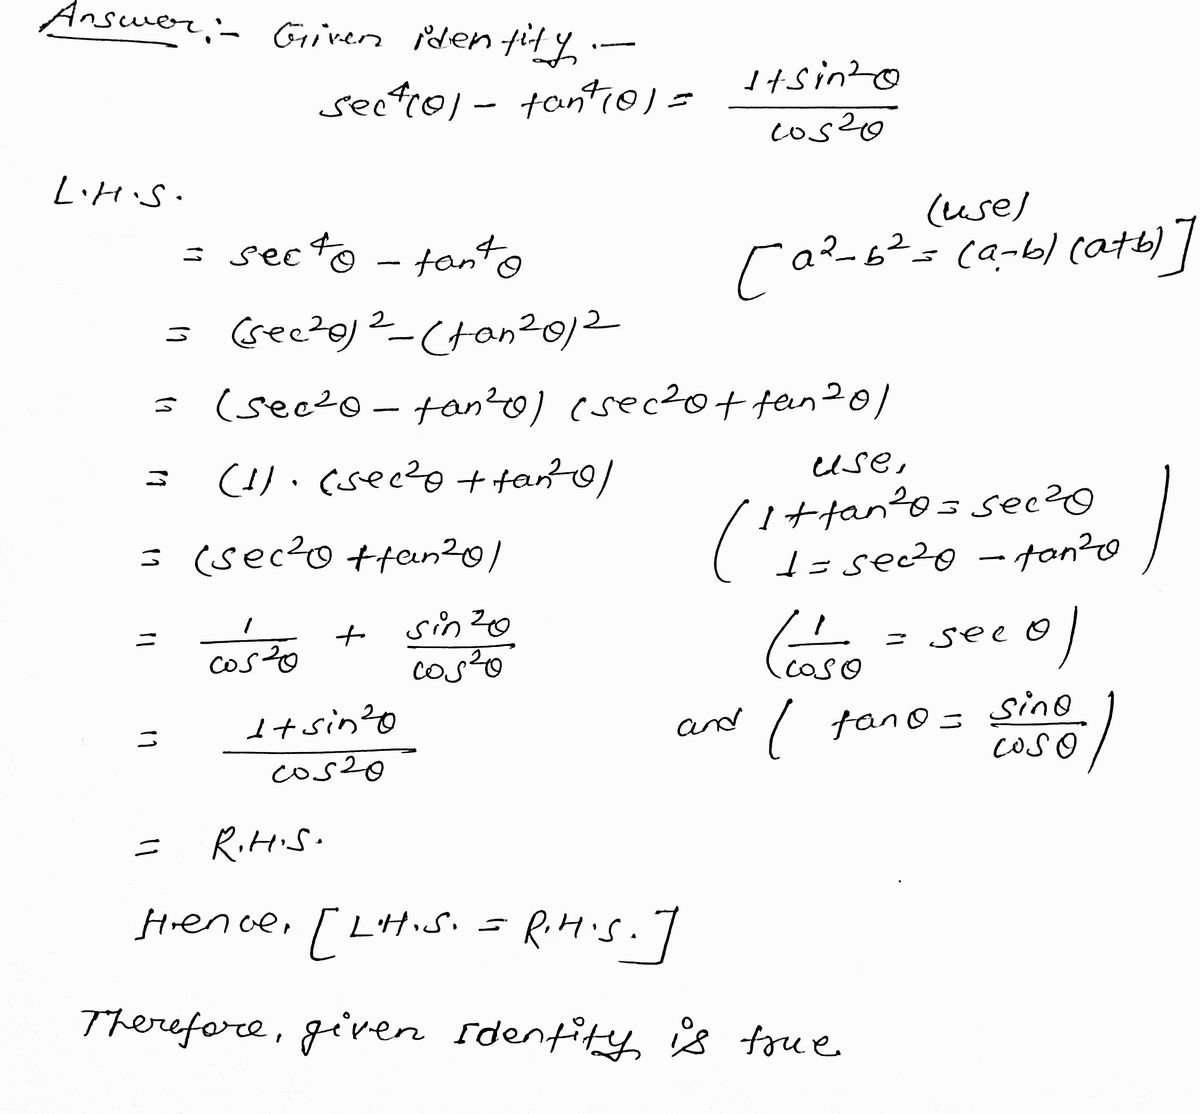 Answer:- Given identity :-
sec⁴(θ) - tan⁴(θ) = (1+sin²θ)/(cos²θ)
L.H.S.
(use)
= sec⁴θ - tan⁴θ [a²-b² = (a-b)(a+b)]
= (sec²θ)² - (tan²θ)²
= (sec²θ - tan²θ) (sec²θ + tan²θ)
= (1) . (sec²θ + tan²θ) use,
(1 + tan²θ = sec²θ
= (sec²θ + tan²θ) 1 = sec²θ - tan²θ)
= 1/cos²θ + sin²θ/cos²θ (1/cosθ = sec θ)
= (1+sin²θ)/(cos²θ) and (tanθ = sinθ/cosθ)
= R.H.S.
Hence, [L.H.S. = R.H.S.]
Therefore, given Identity is true